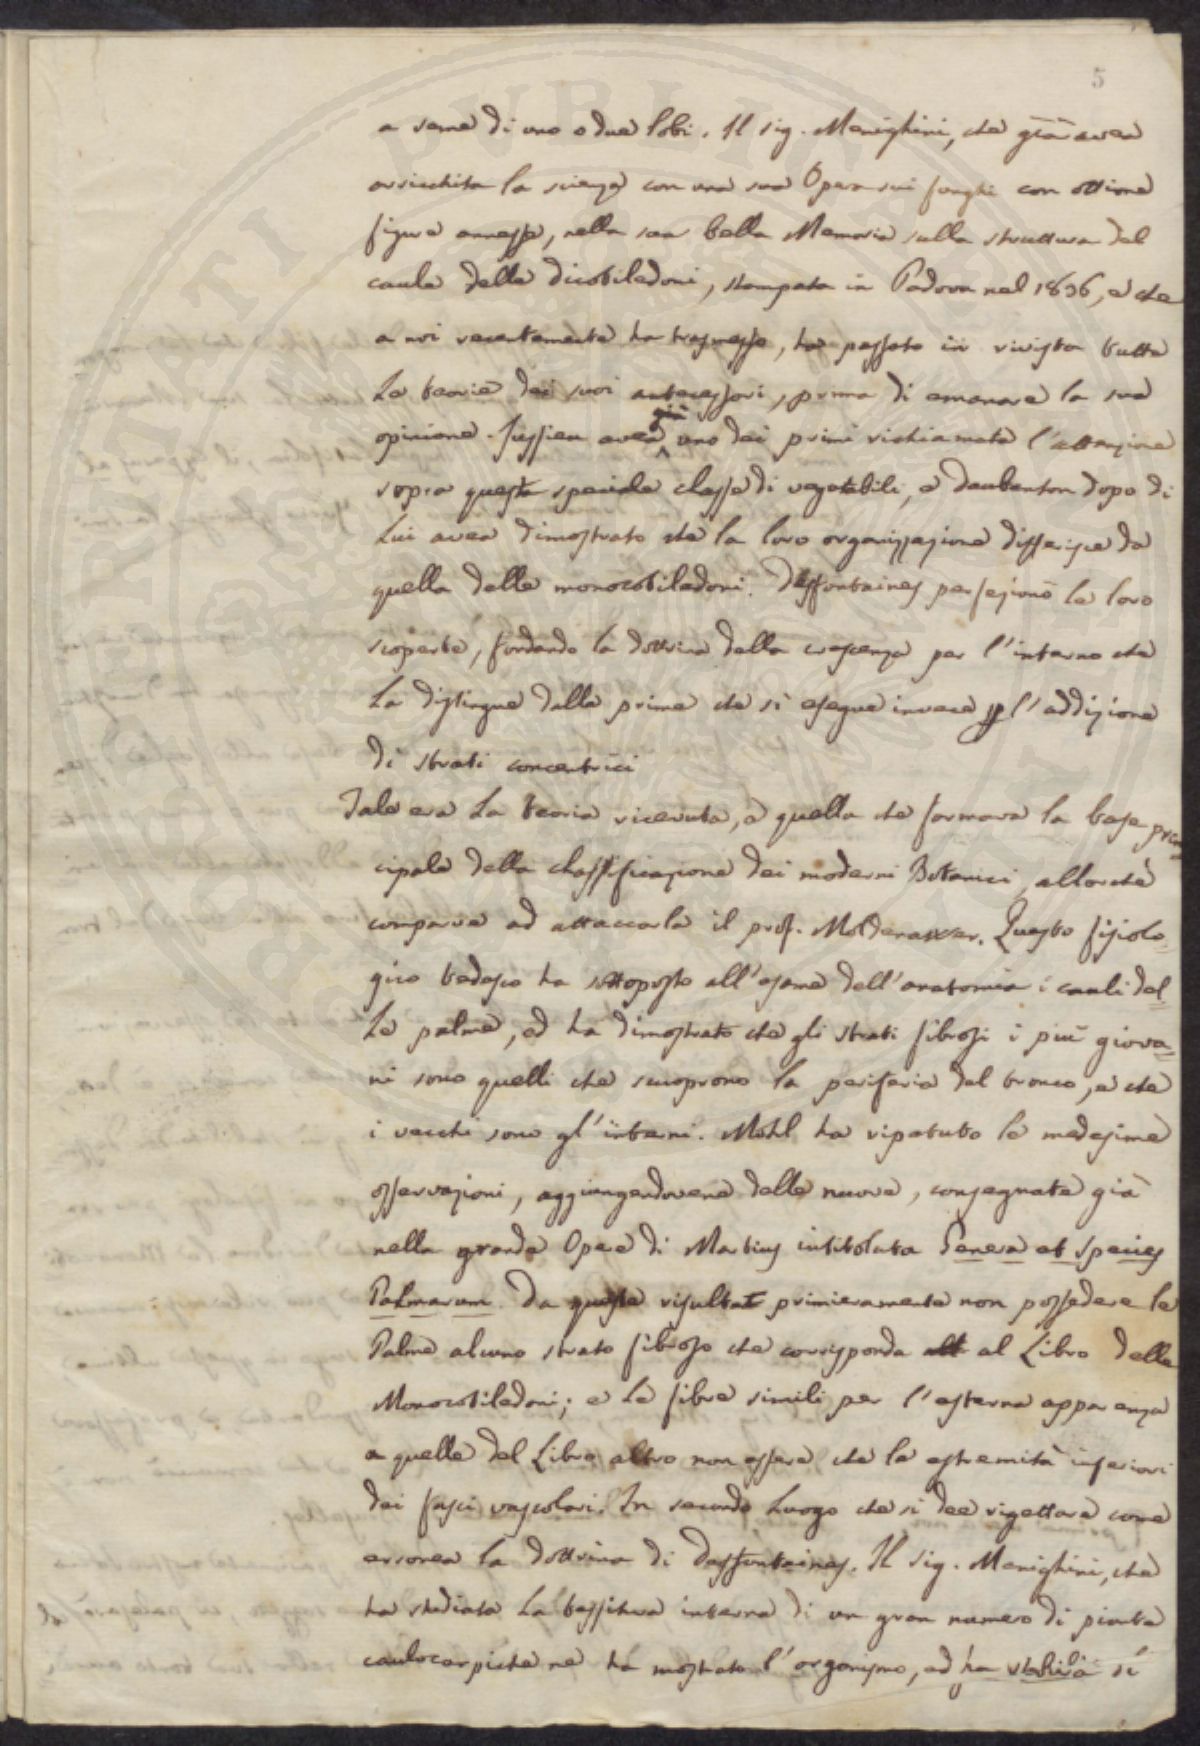 5
a seme di uno o due lobi. Il sig. Menighini, che già avea
arricchita la scienza con una sua Opera sui funghi con ottime
figure annesse, nella sua bella Memoria sulla struttura del
caule delle dicotiledoni, stampata in Padova nel 1836, e che
a noi recentemente ha trasmesse, ha passato in rivista tutte
le teorie dei suoi antecessori, prima di emanare la sua
opinione. Jussieu avea già uno dei primi richiamata l'attenzione
sopra questa speciale classe di vegetabili, e Daubenton dopo di
Lui avea dimostrato che la loro organizzazione differisce da
quella delle monocotiledoni. Desfontaines perfezionò le loro
scoperte, fondando la dottrina della crescenza per l'interno che
La distingue dalle prime che si esegue invece p l'addizione
di strati concentrici
Tale era La teoria ricevuta, e quella che formava la base prin
cipale della classificazione dei moderni Botanici, allorchè
comparve ad attaccarla il prof. Moldenawer. Questo fisiolo-
gico tedesco ha sottoposto all'esame dell'anatomia i cauli del-
Le palme, ed ha dimostrato che gli strati fibrosi i più giova-
ni sono quelli che scuoprono la periferia del tronco, e che
i vecchi sono gl'interni. Mohl ha ripetuto le medesime
osservazioni, aggiungendovene delle nuove, consegnate già
nella grande Opera di Martius intitolata Genera et Species
Palmarum. Da queste risultat primieramente non possedere le
Palme alcuno strato fibroso che corrisponda all al Libro delle
Monocotiledoni; e le fibre simili per l'esterna apparenza
a quelle del Libro altro non essere che le estremità inferiori
dei fasci vascolari. In secondo Luogo che si dee rigettare come
erronea la dottrina di Desfontaines. Il sig. Menighini, che
ha studiata La tessitura interna di un gran numero di piante
caulocarpiche ne ha mostrato l'organismo, ed ha stabilià sì